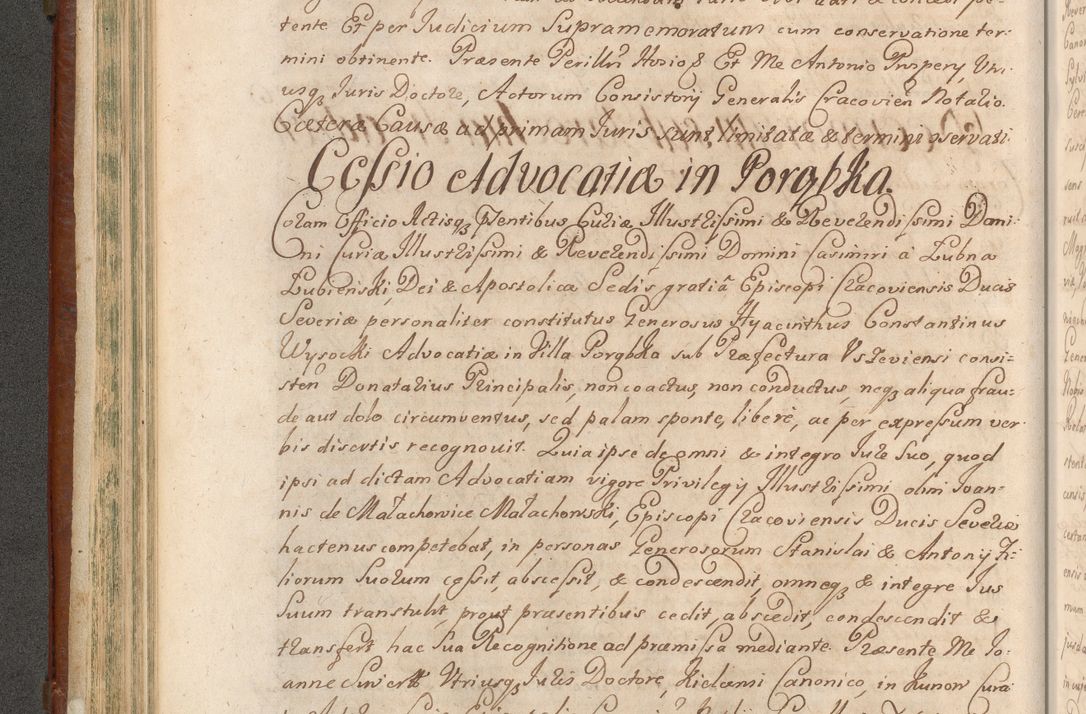 tente Et per Judicium Supramemoratum cum conservatione ter-
mini obtinente. Præsente Perillri Hosio S Et Me Antonio Prospery, Utri-
usq3 Juris Doctore, Actorum Consistorij Generalis Cracovien Notario.
Cæteræ Causæ ad primam Juris sunt limitatæ & termini oservati.
Cessio Advocatiæ in Porąbka.
Coram Officio Actisq3 Pntibus Curiæ Illustrissimi & Reverendissimi Domi-
ni Curiæ Illustrissimi & Reverendissimi Domini Casimiri à Łubna
Łubieński, Dei & Apostolica Sedis gratiâ Episcopi Cracoviensis Ducis
Severiæ personaliter constitutus Generosus Hyacinthus Constantinus
Wysocki Advocatiæ in Villa Porąbka sub Præfectura Usteviensi consi=
sten Donatarius Principalis, non coactus, non conductus, neq3 aliqua frau=
de aut dolo circumventus, sed palam sponte, liberè, ac per expressum ver-
bis disertis recognovit. Quia ipse de omni & integro Jure Suo, quod
ipsi ad dictam Advocatiam vigore Privilegy Illustrissimi olim Joan-
nis de Małachowice Małachowski, Episcopi Cracoviensis Ducis Severiæ
hactenus competebat, in personas Generosorum Stanislai & Antonij Fi=
liorum Suorum cessit, abscessit, & condescendit, omneq3 & integre Jus
Suum transtulit, prout præsentibus cedit, abscedit, condescendit &
transfert hac Sua Recognitione ad præmissa mediante. Præsente Me Jo-
anne Utriusq3 Juris Doctore, Kielcensi Canonico, in Kunow Cura